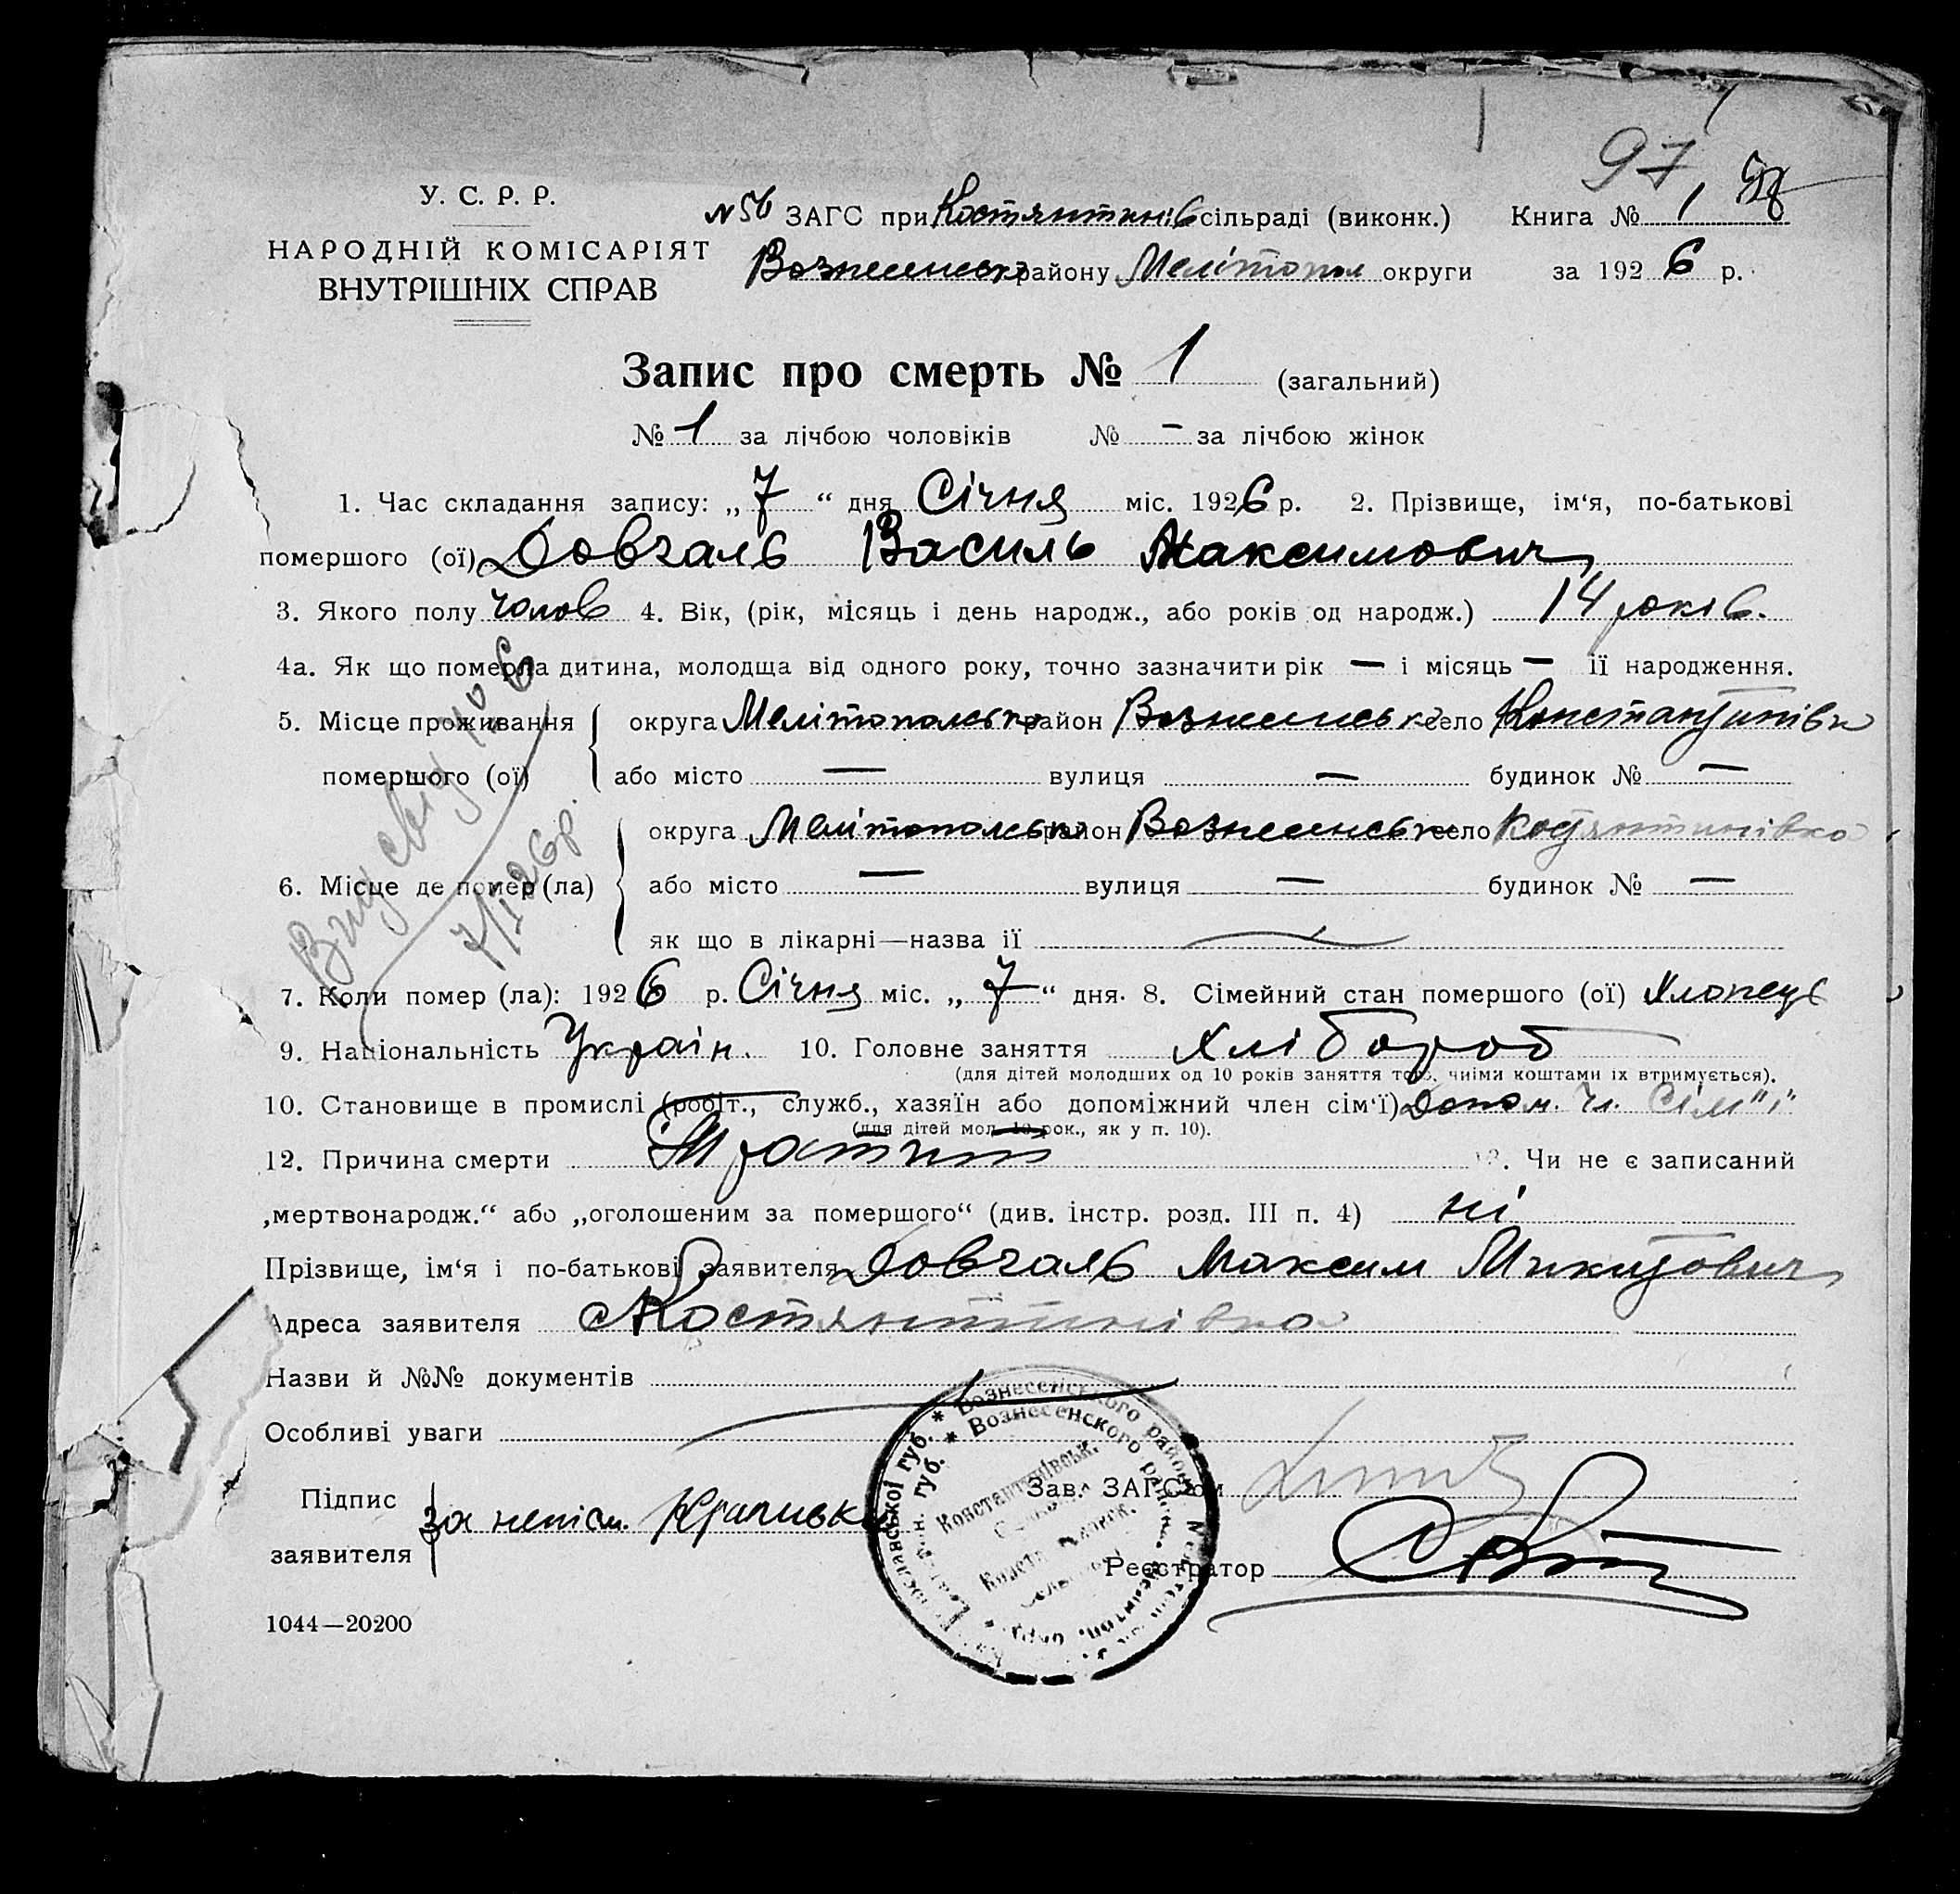 97
У. С. Р. Р.
НАРОДНІЙ КОМІСАРІЯТ
ВНУТРІШНІХ СПРАВ
N 56 ЗАГС при Костянтинів сільраді (виконк.) Книга № 1
Вознесенськ району Мелітопол округи за 1926 р.
Запис про смерть № 1 (загальний)
№ 1 за лічбою чоловіків № - за лічбою жінок
1. Час складання запису: „7“ дня Січня міс. 1926 р. 2. Прізвище, ім‘я, по-батькові
помершого (ої) Довгаль Василь Максимович
3. Якого полу чолов 4. Вік, (рік, місяць і день народж., або років од народж.) 14 років.
4а. Як що померла дитина, молодща від одного року, точно зазначити рік — і місяць — її народження.
5. Місце проживання помершого (ої)
округа Мелітопольська район Вознесенська село Константинівка
або місто — вулиця — будинок № —
6. Місце де помер (ла)
округа Мелітопольська район Вознесенська село Костянтинівка
або місто — вулиця — будинок № —
як що в лікарні—назва її
7. Коли помер (ла): 1926 р. Січня міс. „7“ дня. 8. Сімейний стан помершого (ої) Хлопець
9. Національність Україн. 10. Головне заняття Хлібороб
(для дітей молодших од 10 років заняття того, чиїми коштами їх втримується).
10. Становище в промислі (робіт., служб., хазяїн або допоміжний член сім‘ї) Допом. Чл. Сім"ї"
(для дітей мол. 10 рок., як у п. 10).
12. Причина смерти 13. Чи не є записаний
„мертвонародж.“ або „оголошеним за помершого“ (див. інстр. розд. III п. 4) ні
Прізвище, ім‘я і по-батькові заявителя Довгаль Максим Микитович
Адреса заявителя Костянтинівка
Назви й №№ документів
Особливі уваги
Підпис заявителя за непісм.
Зав. ЗАГС‘ом
Реєстратор
1044—20200
7/I 26 р.
Вознесенського району
Вознесенского район.